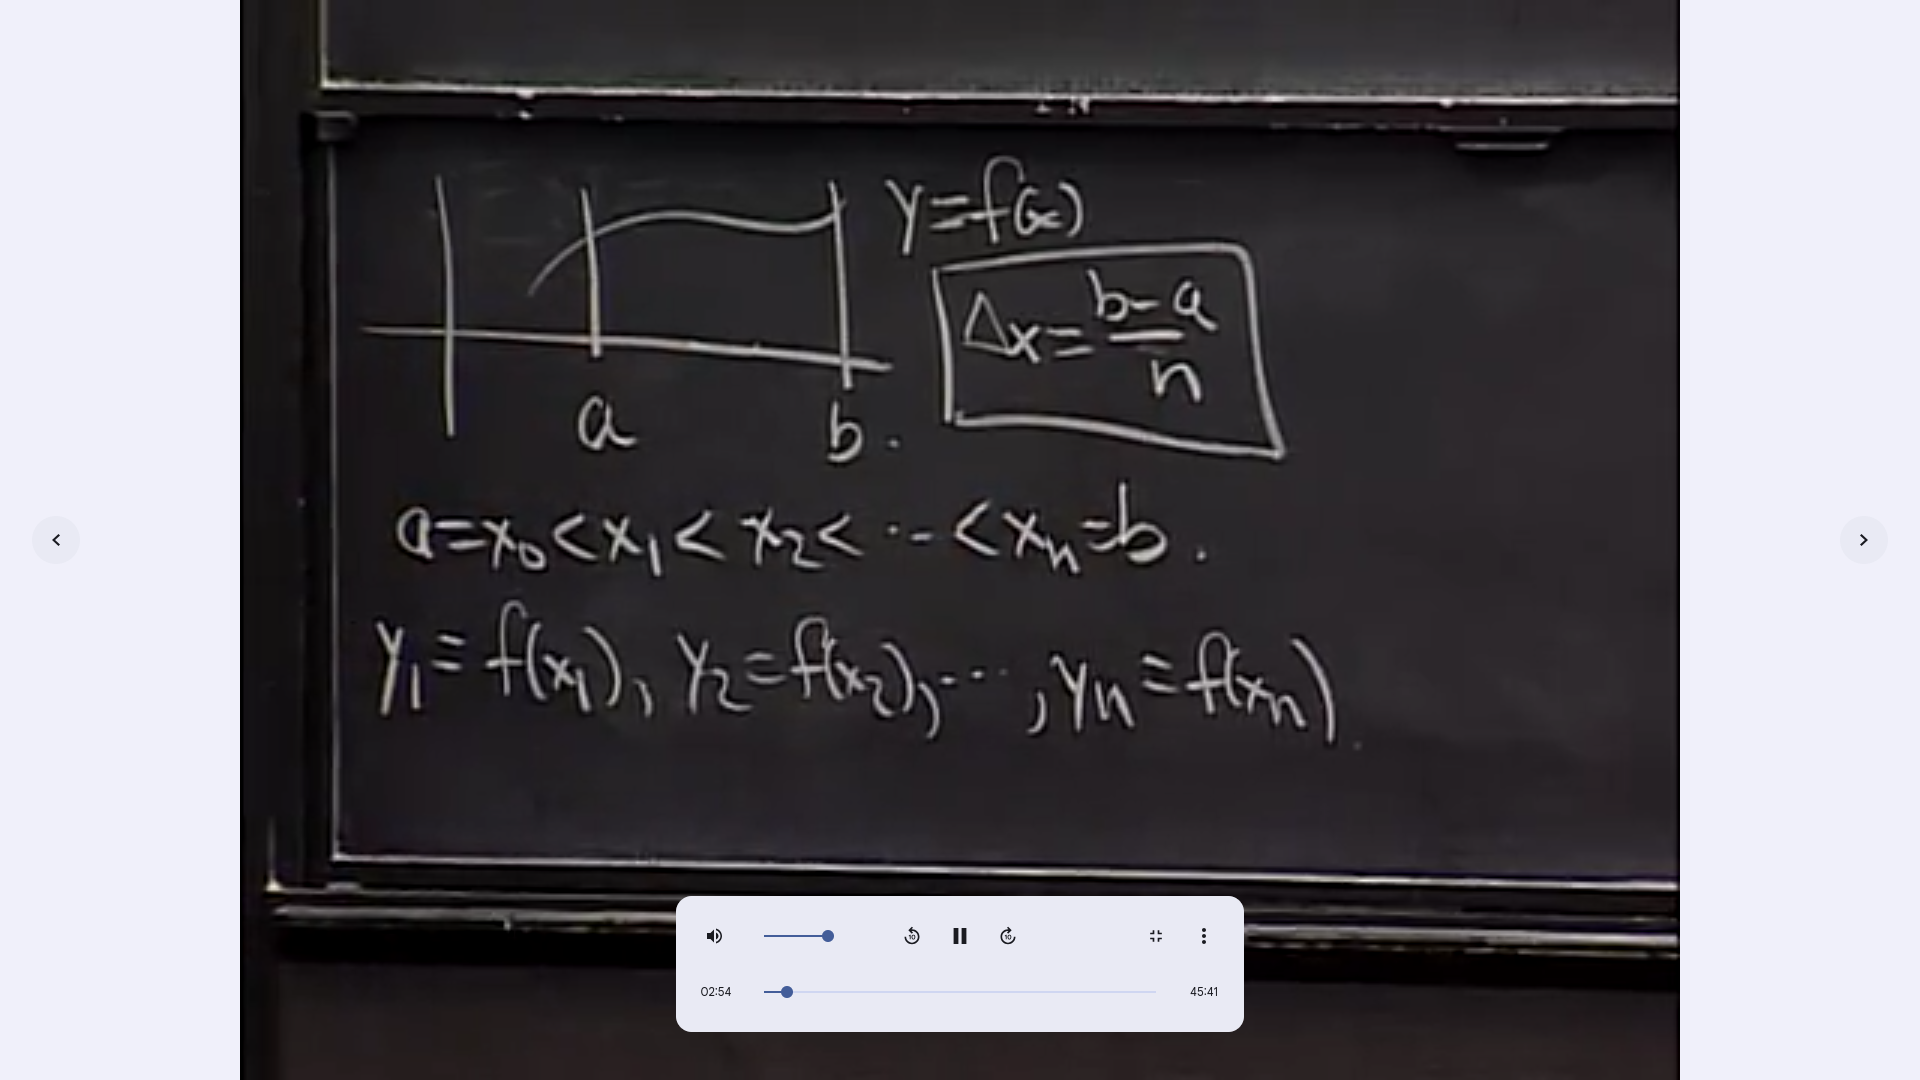 y=f(x)
Δx=(b-a)/n
a b.
a=x₀<x₁<x₂<···<xₙ=b.
y₁≡f(x₁), y₂=f(x₂),···,yₙ≡f(xₙ).
10 10
02:54 45:41